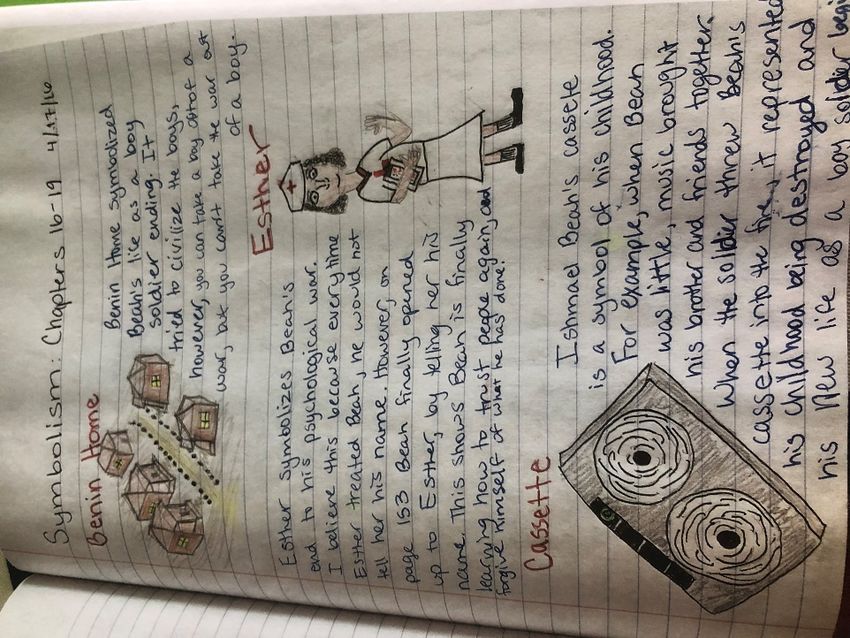 Symbolism: Chapters 16-19 4/17/16
Benin Home
Benin Home symbolized
Beah's life as a boy
soldier ending. It
tried to civilize the boys,
however, you can take a boy out of a
war, but you can't take the war out
of a boy.
Esther
Esther symbolizes Beah's
end to his psychological war.
I believe this because everytime
Esther treated Beah, he would not
tell her his name. However, on
page 153 Beah finally opened
up to Esther, by telling her his
name. This shows Beah is finally
learning how to trust people again, and
forgive himself of what he has done.
Cassette
Ishmael Beah's cassete
is a symbol of his childhood.
For example, when Beah
was little, music brought
his brother and friends together.
When the soldier threw Beah's
cassette into the fire, it represented
his childhood being destroyed and
his New life as a boy soldier